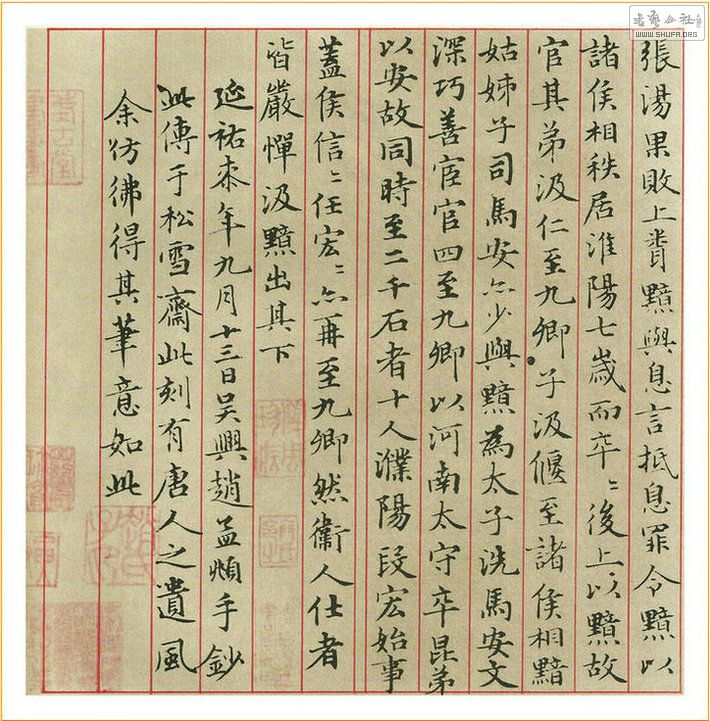 張湯果敗上聞黯與息言抵息罪令黯以
諸侯相秩居淮陽七歲而卒〻後上以黯故
官其弟汲仁至九卿子汲偃至諸侯相黯
姑姊子司馬安亦少與黯為太子洗馬安文
深巧善宦官四至九卿以河南太守卒昆弟
以安故同時至二千石者十人濮陽段宏始事
蓋侯信〻任宏〻亦再至九卿然衞人仕者
皆嚴憚汲黯出其下
延祐柒年九月十三日吳興趙孟頫手鈔
此傳于松雪齋此刻有唐人之遺風
余仿彿得其筆意如此
WWW.SHUFA.ORG